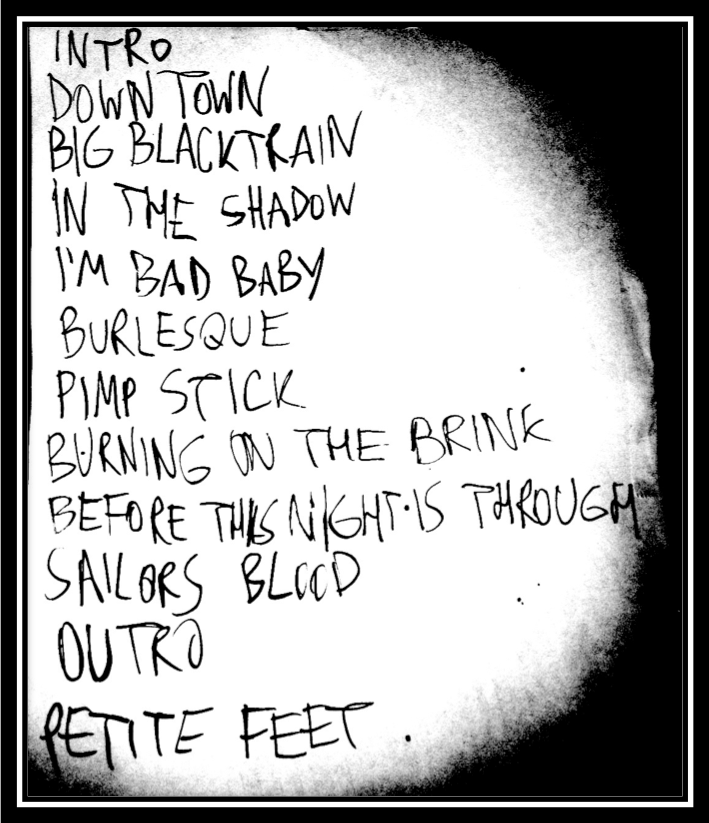 INTRO
DOWN TOWN
BIG BLACKTRAIN
IN THE SHADOW
I'M BAD BABY
BURLESQUE
PIMP STICK
BURNING ON THE BRINK
BEFORE THIS NIGHT IS THROUGH
SAILORS BLOOD
OUTRO
PETITE FEET.